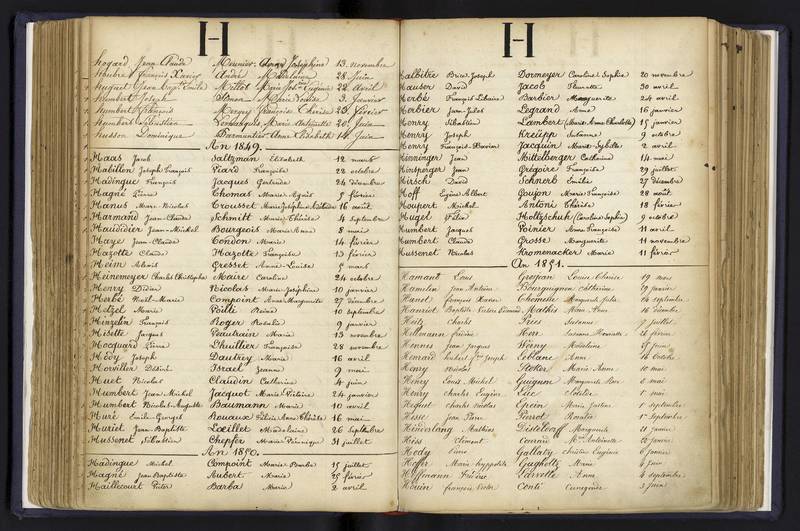 H
hogard Jean Claude Meunier Anne Joséphine 13 novembre
houbre François Xavier André Madelaine 28 Juin
huguet Jean Bapt. Emile Millot Marie José. Eugénie 22 avril
humbert Joseph Simon Marie Louise 3 Janvier
humbert François Mergny françoise Thérèse 23 février
humbert Sébastien Marie Antoinette 20 Juin
husson Dominique Parmentier Anne Elisabeth 14 Juin
An 1849.
Haas Jacob Saltzman Elisabeth 12 mars
Habillon Joseph François Piard Françoise 22 octobre
Hadingue François Jacques Gertrude 24 décembre
Hagné Pierre Thomas Marie-Agnès 5 février
Hanus Marc-Nicolas Trousset Marie Joséphine 16 août
Harmand Jean-Claude Schmitt Marie-Thérèse 4 septembre
Haudidier Jean-Michel Bourgeois Marie Anne 8 mai
Haye Jean-Claude Condon Marie 14 février
Hazotte Claude Hazotte Françoise 13 février
Heim Alexis Gresset Anne-Louise 5 mars
Heinemeyer Charles Christophe Maire Caroline 24 octobre
Henry Didier Nicolas Marie-Joséphine 10 janvier
Herbé Noël-Marie Compoint Anne Marguerite 27 décembre
Hetzel Marie Poilli Reine 10 septembre
Hinzelin François Roger Rosalie 9 janvier
Hisette Jacques Beaudrain Marie 13 novembre
Hocquard Pierre Lhuillier Françoise 28 novembre
Hody Joseph Dautrey Marie 16 avril
Horviller Désiré Israel Jeanne 9 mai
Huet Nicolas Claudin Catherine 4 juin
Humbert Jean-Michel Jacquot Marie-Victoire 24 janvier
Humbert Nicolas-Auguste Baumann Marie 10 avril
Huré Emile-Georges Rouaux Félicie Anne Thérèse 16 mai
Huriot Jean-Baptiste Lœillet Madelaine 26 septembre
Hussenet Sébastien Chepfer Marie Véronique 31 juillet
An 1850.
Hadingue Michel Compoint Marie-Barbe 15 juillet
Hagné Jean-Baptiste Aubert Marie 25 février
Haillecourt Pierre Barba Marie 2 avril
H
Halbître Brice Joseph Dormeyer Caroline-Sophie 20 novembre
Hauser David Jacob Fleurette 30 avril
Herbé François Libaire Barbier Marguerite 24 avril
Herbier Jean-Jules Legrand Anne 16 janvier
Henry Sébastien Lambert (Marie Anne Charlotte) 15 janvier
Henry Joseph Kreüpp Susanne 9 octobre
Henry François-Xavier Jacquin Marie-Sybille 2 avril
Hinninger Jean Mittelberger Catherine 14 mai
Hinsperger Jean Grégoire Françoise 29 juillet
Hirsch David Schnerb Emilie 27 décembre
Hoff Egide Albert Goujon Marie Françoise 28 août
Houpert Michel Antoni Thérèse 18 février
Hugel Félix Holtzschuh (Caroline Sophie) 9 octobre
Humbert Jacques Poinier Anne Françoise 11 avril
Humbert Claude Grosse Marguerite 11 novembre
Hussenet Nicolas Kromenacker Marie 11 février
An 1851.
Hamant Louis Grosjean Louise Clarisse 19 mai
Hamelin Jean Antoine Bourguignon Catherine 29 janvier
Hanot François Xavier Marguerite Julie 14 septembre
Hanriot Baptiste Mathis Marie Anne 16 décembre
Heitz Charles Pries Susanne 9 juillet
Hellmann Herr Susanne Henriette 26 février
Hennes Jean Jacques Madelaine 25 juin
Henrard Joseph Leblanc Anne 14 octobre
Henry Nicolas Stoker Marie Anne 10 mai
Henry Louis Michel Guignon Marguerite Rose 6 mai
Henry Charles Eugène Luc 1 mai
Hequet Charles Nicolas Marie Justine 1 septembre
Hesse Jean Pierre Pierrot Rosalie 1er septembre
Hinderlang Mathias Disteldorff Marguerite 21 janvier
Hiss Clément Conrard Mie Antoinette 22 janvier
Hody Pierre Gallaty Christine Eugénie 6 janvier
Hoffer Marie hyppolite Gughollz Marie 4 juin
Hoffmann Pierre Anne 4 septembre
Houin François Victor Conti Cunégonde 3 juin